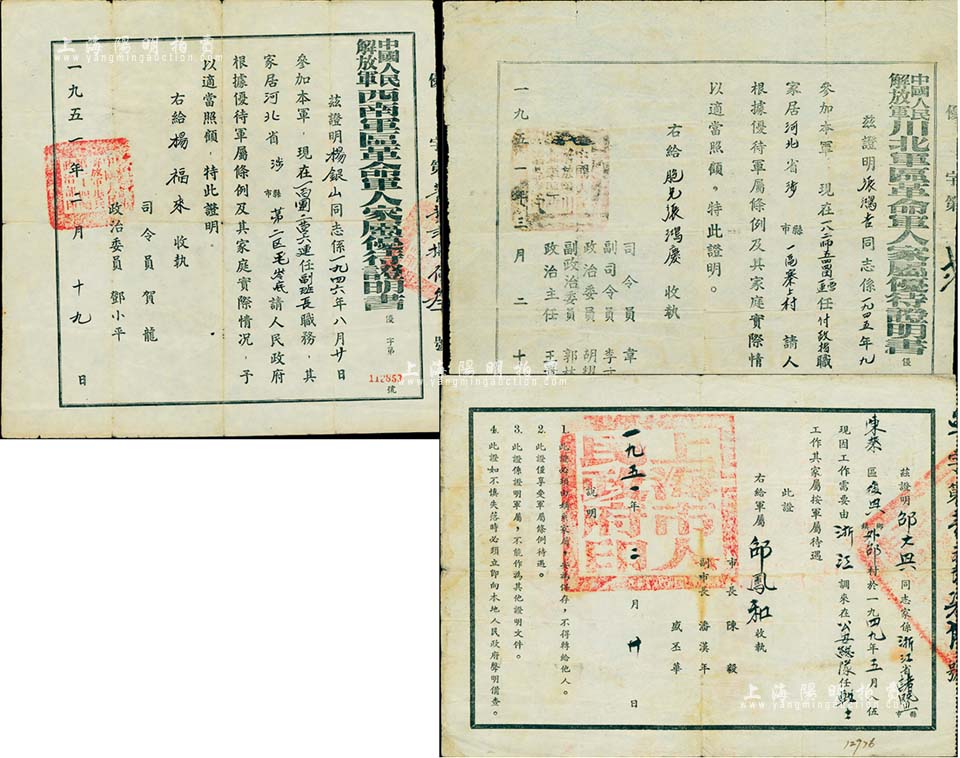 中國人民解放軍西南軍區革命軍人家屬優待證明書
優 字第 112853 號
茲證明楊銀山同志係一九四六年八月廿日
參加本軍，現在
連任副班長職務，其
家居河北省涉縣市第二區
請人民政府
根據優待軍屬條例及其家庭實際情况，予
以適當照顧，特此證明。
右給楊福來 收執
司令員 賀龍
政治委員 鄧小平
一九五一年二月十九日
優 字第 號
中國人民解放軍川北軍區革命軍人家屬優待證明書
優
茲證明張鴻吉同志係一九四五年九
參加本軍 現在
任付政指職
家居河北省涉縣市一區寨上村 請人
根據優待軍屬條例及其家庭實際情
以適當照顧。特此證明。
右給胞兄張鴻慶 收執
司令員 韋
副司令員 李
政治委員 胡耀
副政治委員 郭林
政治主任 王
一九五一年三月二十
字第 號
茲證明邵大興同志家係浙江省諸暨縣市
東蔡區復興鄉鎮外邵村於一九四九年五月入伍
現因工作需要由浙江調來在公安總隊任戰士
工作其家屬按軍屬待遇
此證
右給軍屬 邵鳳和 收執
市長 陳毅
副市長 潘漢年
盛丕華
一九五一年二月廿日
上海市人民政府印
說明
1. 此證必須由
家屬，妥為保存，不得轉給他人。
2. 此證僅享受軍屬條例待遇。
3. 此證係證明軍屬，不能作為其他證明文件。
4. 此證如不慎失落時必須立即向本地人民政府聲明備查。
12976
上海陽明拍賣
www.yangmingauction.com
上海陽明拍賣
www.yangmingauction.com
上海陽明拍賣
www.yangmingauction.com